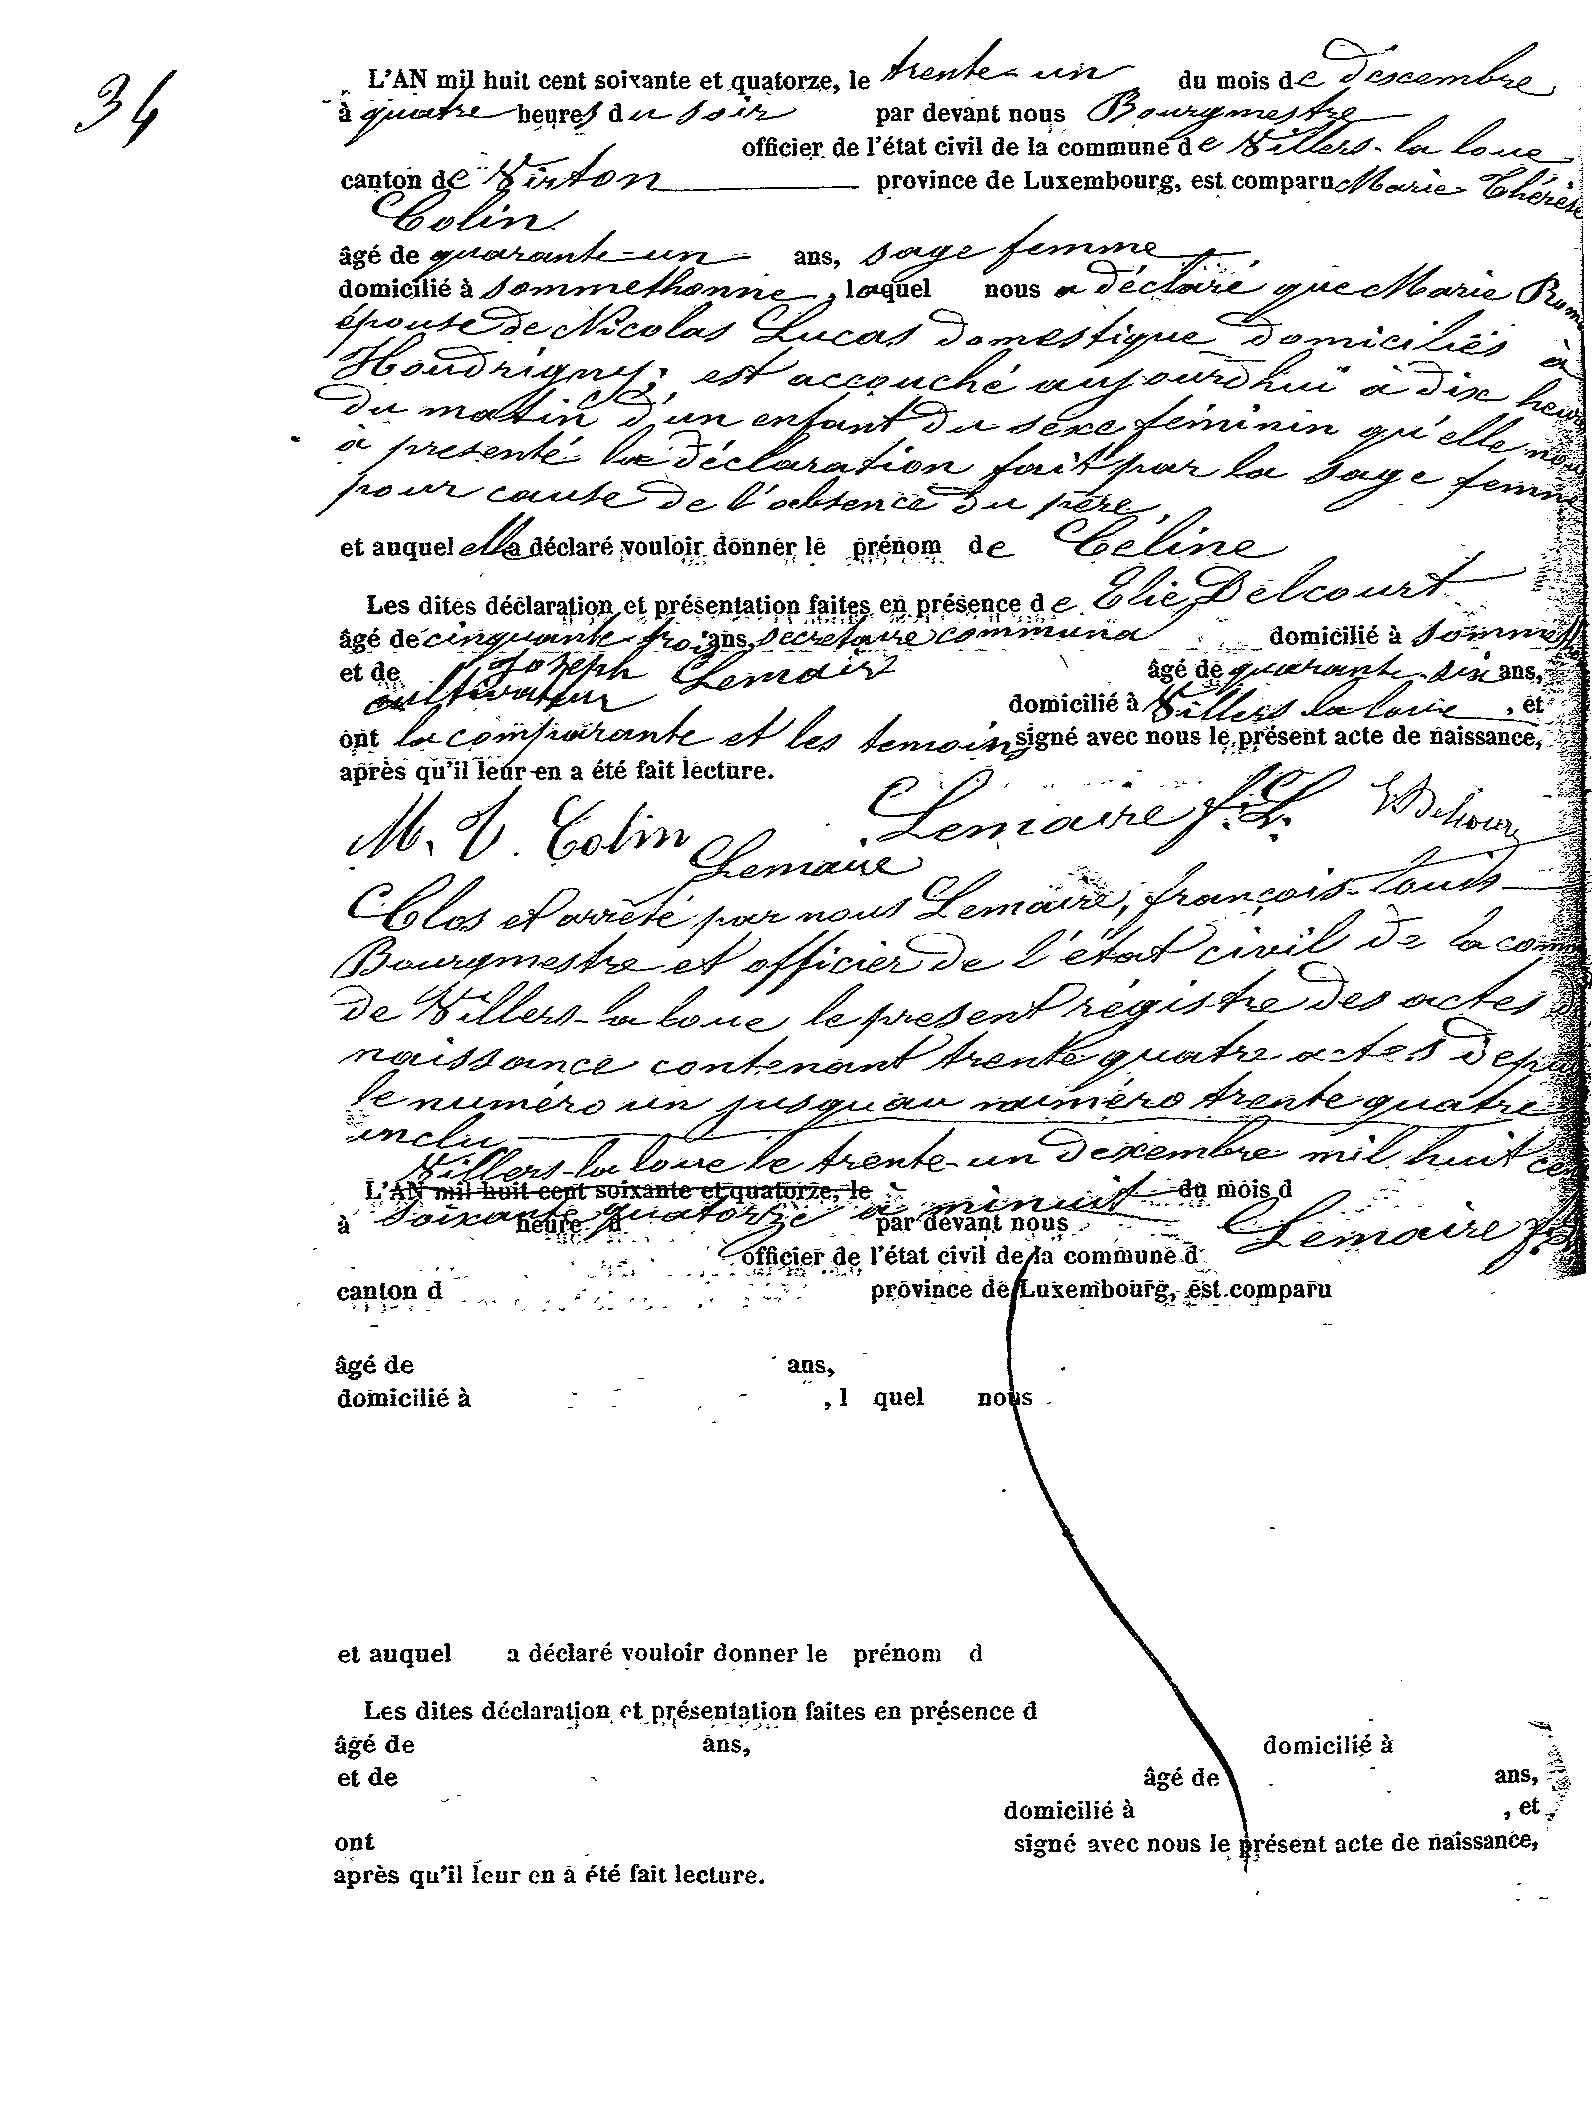 34
L'AN mil huit cent soixante et quatorze, le trente-un du mois de descembre
à quatre heures du soir par devant nous Bourgmestre
officier de l'état civil de la commune de Villers-la loue
canton de Virton province de Luxembourg, est comparu Marie Thérèse
Colin
âgé de quarante-un ans, sage femme
domicilié à Sommethonne, laquel nous a déclaré que Marie
épouse de Nicolas Lucas domestique domiciliés à
Houdrigny; est accouché aujourdhui à dix heur
du matin d'un enfant du sexe féminin qu'elle nou
à presenté la déclaration fait par la sage femme
pour cause de l'absence du père,
et auquel elle a déclaré vouloir donner le prénom de Céline
Les dites déclaration et présentation faites en présence de Elie Delcourt
âgé de cinquante trois ans, secretaire communa domicilié à Sommeth
et de Joseph Lemaire âgé de quarante-six ans,
cultivateur domicilié à Villers la loue, et
ont la comparante et les temoins signé avec nous le présent acte de naissance,
après qu'il leur en a été fait lecture.
M. T. Colin Lemaire f. L.
Lemaire
Clos et arrêté par nous Lemaire, françois-Louis
Bourgmestre et officier de l'état civil de la com
de Villers-la loue le present régistre des actes d
naissance contenant trente quatre actes depui
le numéro un jusquau numéro trente quatre
inclu
Villers-la loue le trente-un decembre mil huit cen
L'AN mil huit cent soixante et quatorze, le du mois d
soixante quatorze à minuit
à heure d par devant nous Lemaire f.
officier de l'état civil de la commune d
canton d province de Luxembourg, est comparu
âgé de ans,
domicilié à , l quel nous
et auquel a déclaré vouloir donner le prénom d
Les dites déclaration et présentation faites en présence d
âgé de ans, domicilié à
et de âgé de ans,
domicilié à , et
ont signé avec nous le présent acte de naissance,
après qu'il leur en a été fait lecture.